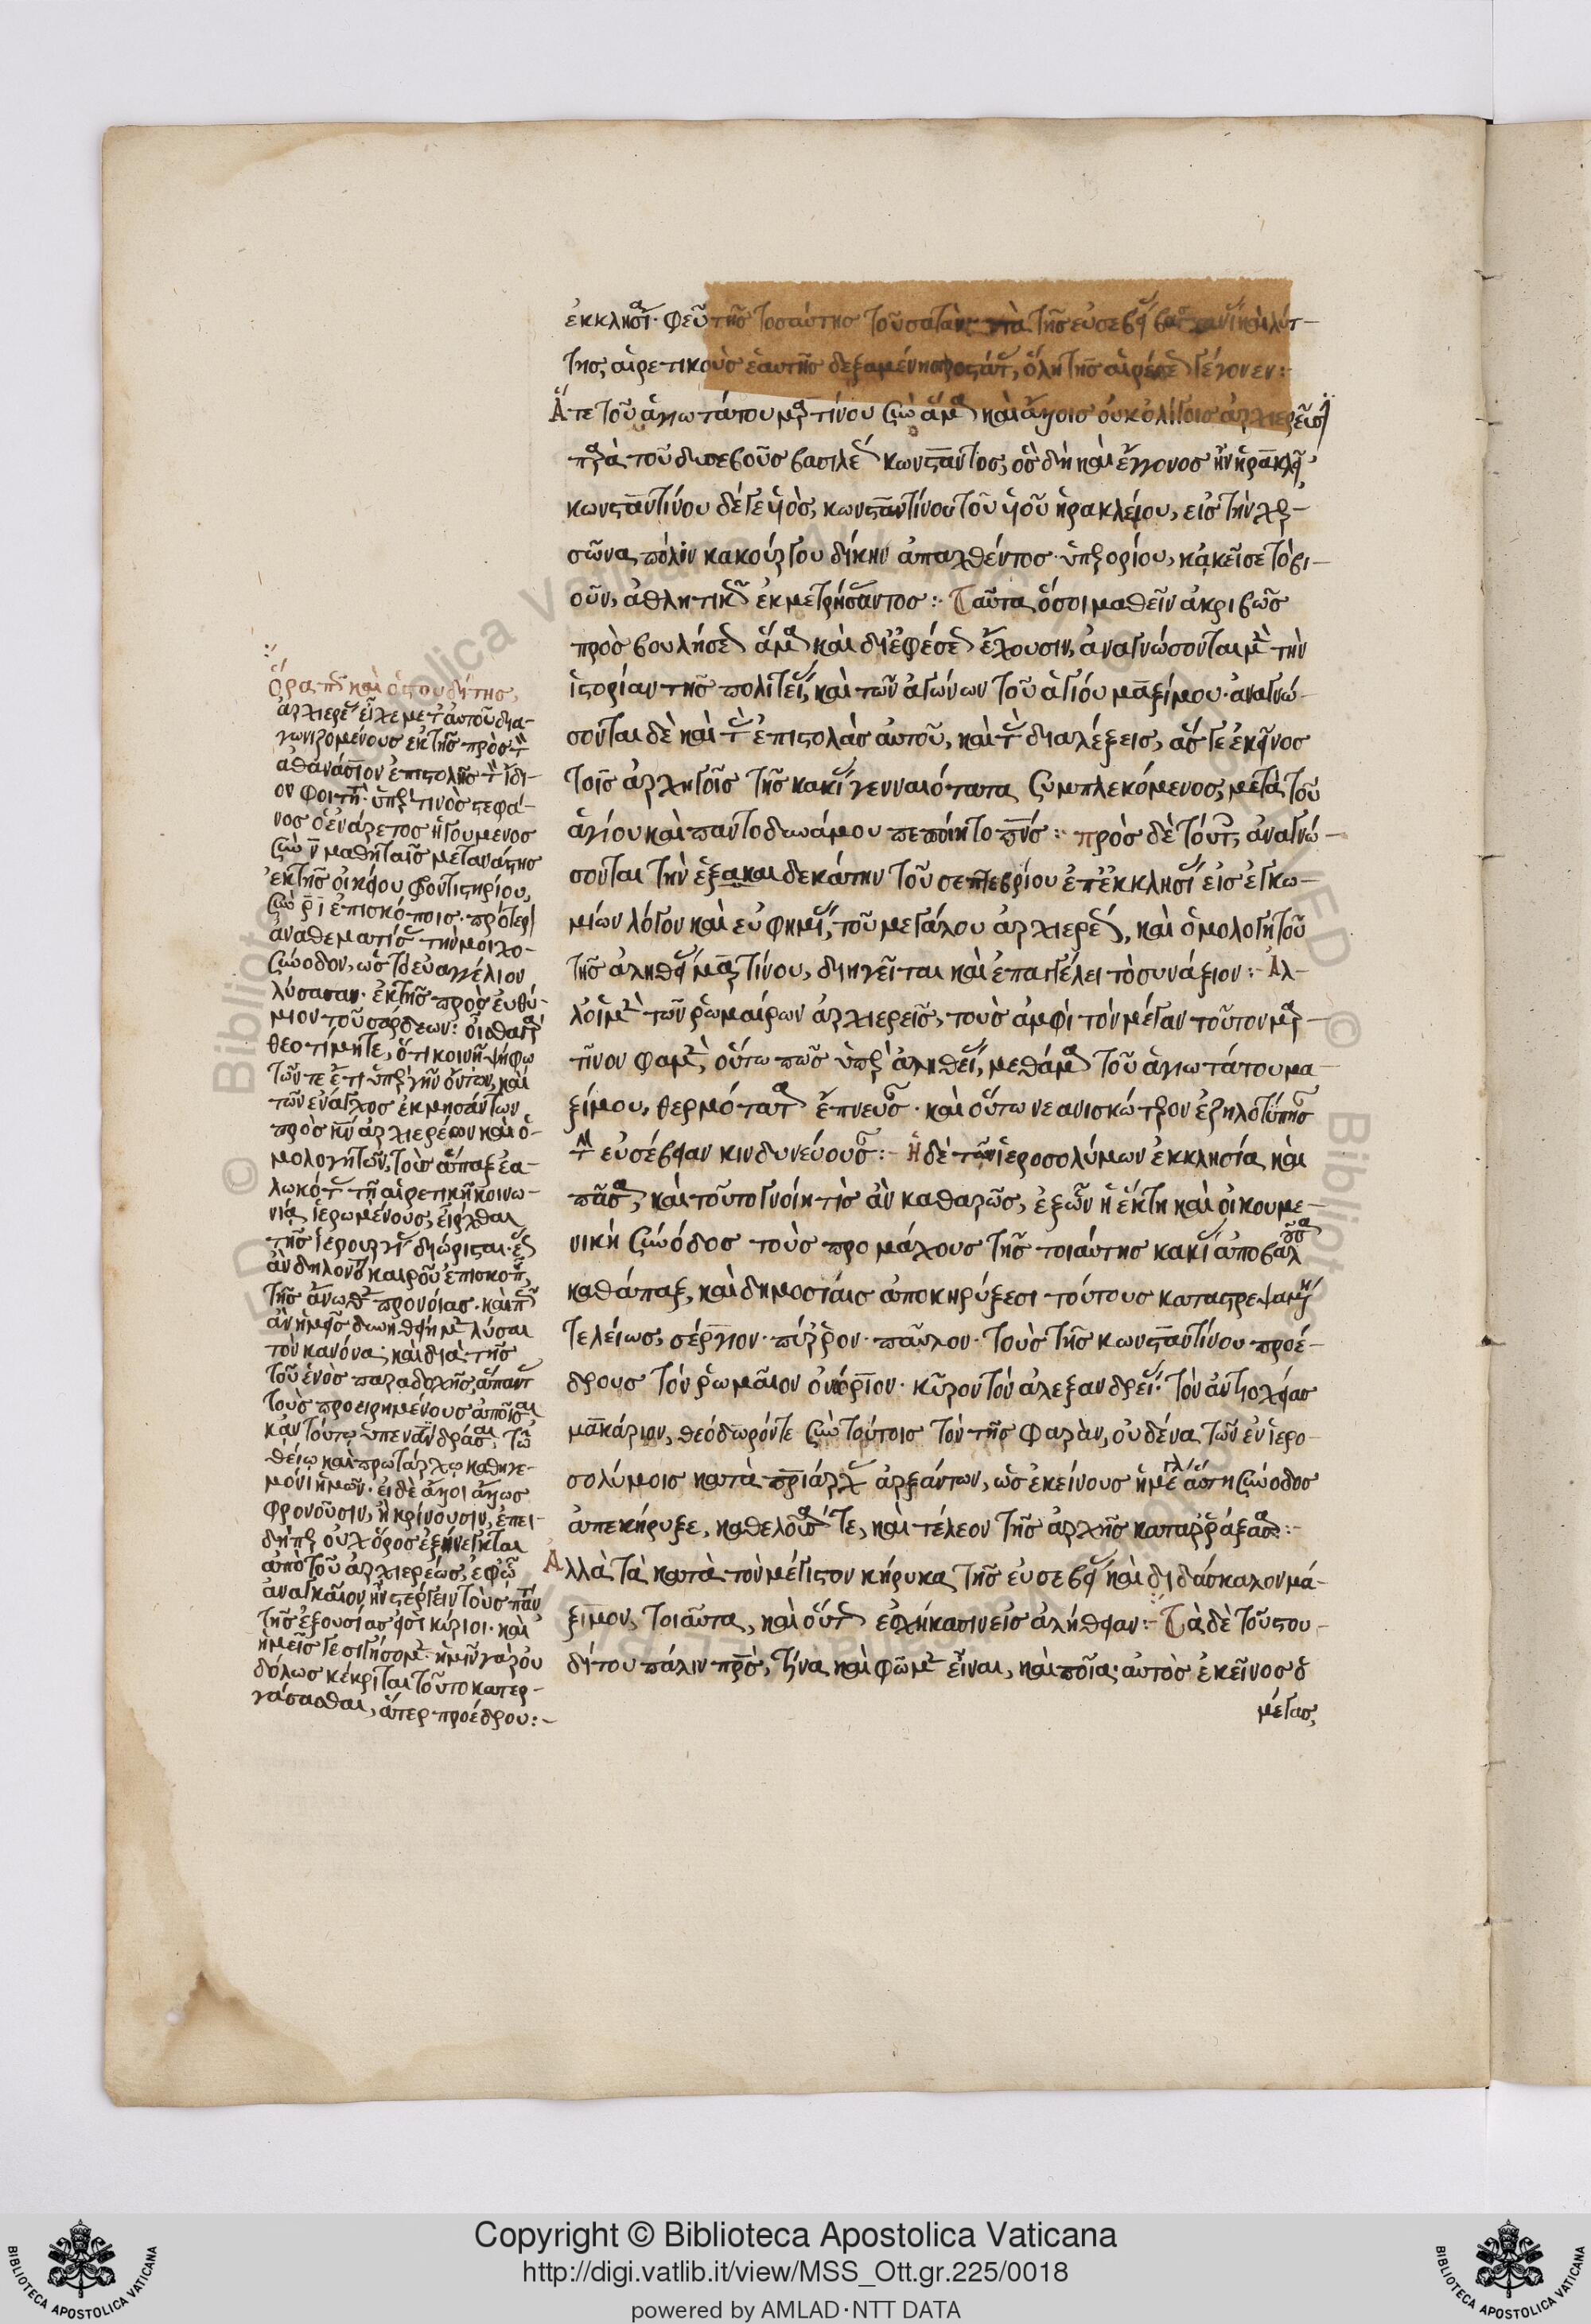 ἐκκλησία. φεῦ τῆς τοσαύτης τοῦ σατὰν
της, αἱρετικοὺς ἑαυτῆς δεξαμένη ὅλη τῆς αἱρέσεως γέγονεν:
Ἅτε τοῦ ἁγιωτάτου μαρτίνου σὺν ἅμα καὶ ἄλλοις οὐκ ὀλίγοις ἀρχιερεῦσι
παρὰ τοῦ δυσεβοῦς βασιλέως κώνσταντος, ὃς δὴ καὶ ἔγγονος ἦν ἡρακλείου,
κωνσταντίνου δέ γε υἱὸς, κωνσταντίνου τοῦ υἱοῦ ἡρακλείου, εἰς τὴν χερ-
σῶνα πόλιν κακούργου δίκην ἀπαχθέντος ὑπερορίου, κἀκεῖσε τὸ βι-
οῦν, ἀθλητικῶς ἐκμετρήσαντος:- Ταῦτα ὅσοι μαθεῖν ἀκριβῶς
προσβουλήσεως ἅμα καὶ δι' ἐφέσεως ἔχουσιν, ἀναγνώσονται μὲν τὴν
ἱστορίαν τῆς πολιτείας, καὶ τῶν ἀγώνων τοῦ ἁγίου μαξίμου. ἀναγνώ-
σονται δὲ καὶ τὰς ἐπιστολὰς αὐτοῦ, καὶ τὰς διαλέξεις, ἅς γε ἐκεῖνος
τοῖς ἀρχηγοῖς τῆς κακίας γενναιότατα συμπλεκόμενος, μετὰ τοῦ
ἁγίου καὶ παντοδυνάμου πεποίητο πνς: πρὸς δὲ τούτοις, ἀναγνώ-
σονται τὴν ἑξακαιδεκάτην τοῦ σεπτεβρίου ἐπ' ἐκκλησίας εἰς ἐγκω-
μίων λόγον καὶ εὐφημίας, τοῦ μεγάλου ἀρχιερέως, καὶ ὁμολογητοῦ
τῆς ἀληθείας μαρτίνου, διηγεῖται καὶ ἐπαγγέλει τὸ συνάξιον:- Ἀλ-
λ' οἱ μὲν τῶν ῥωμαίων ἀρχιερεῖς, τοὺς ἀμφὶ τὸν μέγαν τοῦτον μαρ-
τῖνον φαμὲν, οὕτω πως ὑπὲρ ἀληθείας, μεθ' ἅμα τοῦ ἁγιωτάτου μα-
ξίμου, θερμότατα ἔπνευσαν. καὶ οὕτω νεανισκώτερον ἐζηλοτύπησαν
τὴν εὐσέβειαν κινδυνεύουσαν:- Ἡ δὲ τῶν ἱεροσολύμων ἐκκλησία καὶ
πᾶσα, καὶ τοῦτο γνοίη τὶς ἂν καθαρῶς, ἐξ ὧν ἡ ἕκτη καὶ οἰκουμε-
νικὴ σύνοδος τοὺς προμάχους τῆς τοιαύτης κακίας ἀποβαλοῦσα
καθάπαξ, καὶ δημοσίαις ἀποκηρύξεσι τούτους καταστρεψαμένη
τελείως, σέργιον. πύρρον. παῦλον. τοὺς τῆς κωνσταντίνου προέ-
δρους τὸν ῥωμαῖον ὀνόριον. κῦρον τὸν ἀλεξανδρείας. τὸν ἀντιοχείας
μακάριον, θεόδωρόν τε σὺν τούτοις τὸν τῆς φαρὰν, οὐδένα τῶν ἐν ἱερο-
σολύμοις κατὰ πριάρχας ἀρξάντων, ὡς ἐκείνους ἡ μεγάλη αὕτη σύνοδος
ἀπεκήρυξε, καθελοῦσά τε, καὶ τέλεον τῆς ἀρχῆς καταρράξασα:-
Ἀλλὰ τὰ κατὰ τὸν μέγιστον κήρυκα τῆς εὐσεβείας καὶ διδάσκαλον μά-
ξιμον, τοιαῦτα, καὶ οὕτως ἐσχήκασιν εἰς ἀλήθειαν:- Τὰ δὲ τοῦ στου-
δίτου πάλιν πρὸς, τίνα καὶ φῶμεν εἶναι, καὶ ποῖα. αὐτὸς ἐκεῖνος ὁ
μέγας,
ὅρα πῶς καὶ ὁ στουδίτης,
ἀρχιερεῖς εἶχε μετ' αὐτοῦ δια-
γωνιζομένους ἐκ τῆς πρὸς τὸν
ἀθανάσιον ἐπιστολῆς τὸν ἴδι-
ον φοιτητήν. ὑπὲρ τινὸς στεφά-
νος ὁ ἐνάρετος ἡγούμενος
σὺν ν μαθηταῖς μετανάστης
ἐκ τῆς οἰκείου φροντιστηρίου,
σὺν ρι ἐπισκόποις. πρότερον
ἀναθεματίσας τὴν μοιχο-
σύνοδον, ὡς τὸ εὐαγγέλιον
λύσασαν. ἐκ τῆς πρὸς εὐθύ-
μιον τοῦ σάρδεων: οἶσθα πάτερ
θεοτίμητε, ὅτι κοινῇ ψήφῳ
τῶν τε ἔτι ὑπὲρ γῆν ὄντων, καὶ
τῶν ἔναγχος ἐκδημησάντων
πρὸς κν ἀρχιερέων καὶ ὁ-
μολογητῶν, τοὺς ἅπαξ ἑα-
λωκότας τῇ αἱρετικῇ κοινω-
νίᾳ ἱερωμένους, εἴργεσθαι
τῆς ἱερουργίας διώρισται. ἕως
ἂν δηλονότι καιροῦ ἐπισκοπῇ,
τῆς ἄνωθεν προνοίας.
τὸν κανόνα; καὶ διὰ τῆς
τοῦ ἑνὸς παραδοχῆς, ἅπαντας
τοὺς προειρημένους
θείῳ καὶ πρωτάρχῳ καθηγε-
μόνι ἡμῶν. εἰ δὲ ἄλλοι ἄλλως
φρονοῦσιν, ἢ κρίνουσιν, ἐπει-
δήπερ οὐχ ὅρος ἐξήνεγκται
ἀπὸ τοῦ ἀρχιερέως, ἐφ' ᾧ
ἀναγκαῖον ἦν στέργειν τοὺς πάντας,
τῆς ἐξουσίας εἰσὶ κύριοι. καὶ
ἡμεῖς γε σιγήσομεν. ἡμῖν γὰρ οὐ
δόλως κέκριται τοῦτο κατερ-
γάσασθαι, ἅπερ προέδρου:-
Copyright © Biblioteca Apostolica Vaticana
http://digi.vatlib.it/view/MSS_Ott.gr.225/0018
powered by AMLAD·NTT DATA